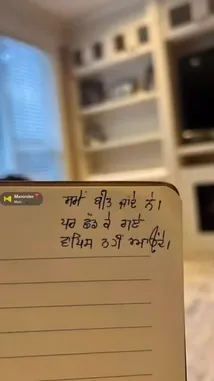 Maninder
ਸਮੇਂ ਬੀਤ ਜਾਂਦੇ ਨੇ।
ਪਰ ਛੱਡ ਕੇ ਗਏ
ਵਾਪਿਸ ਨਹੀਂ ਆਉਂਦੇ।